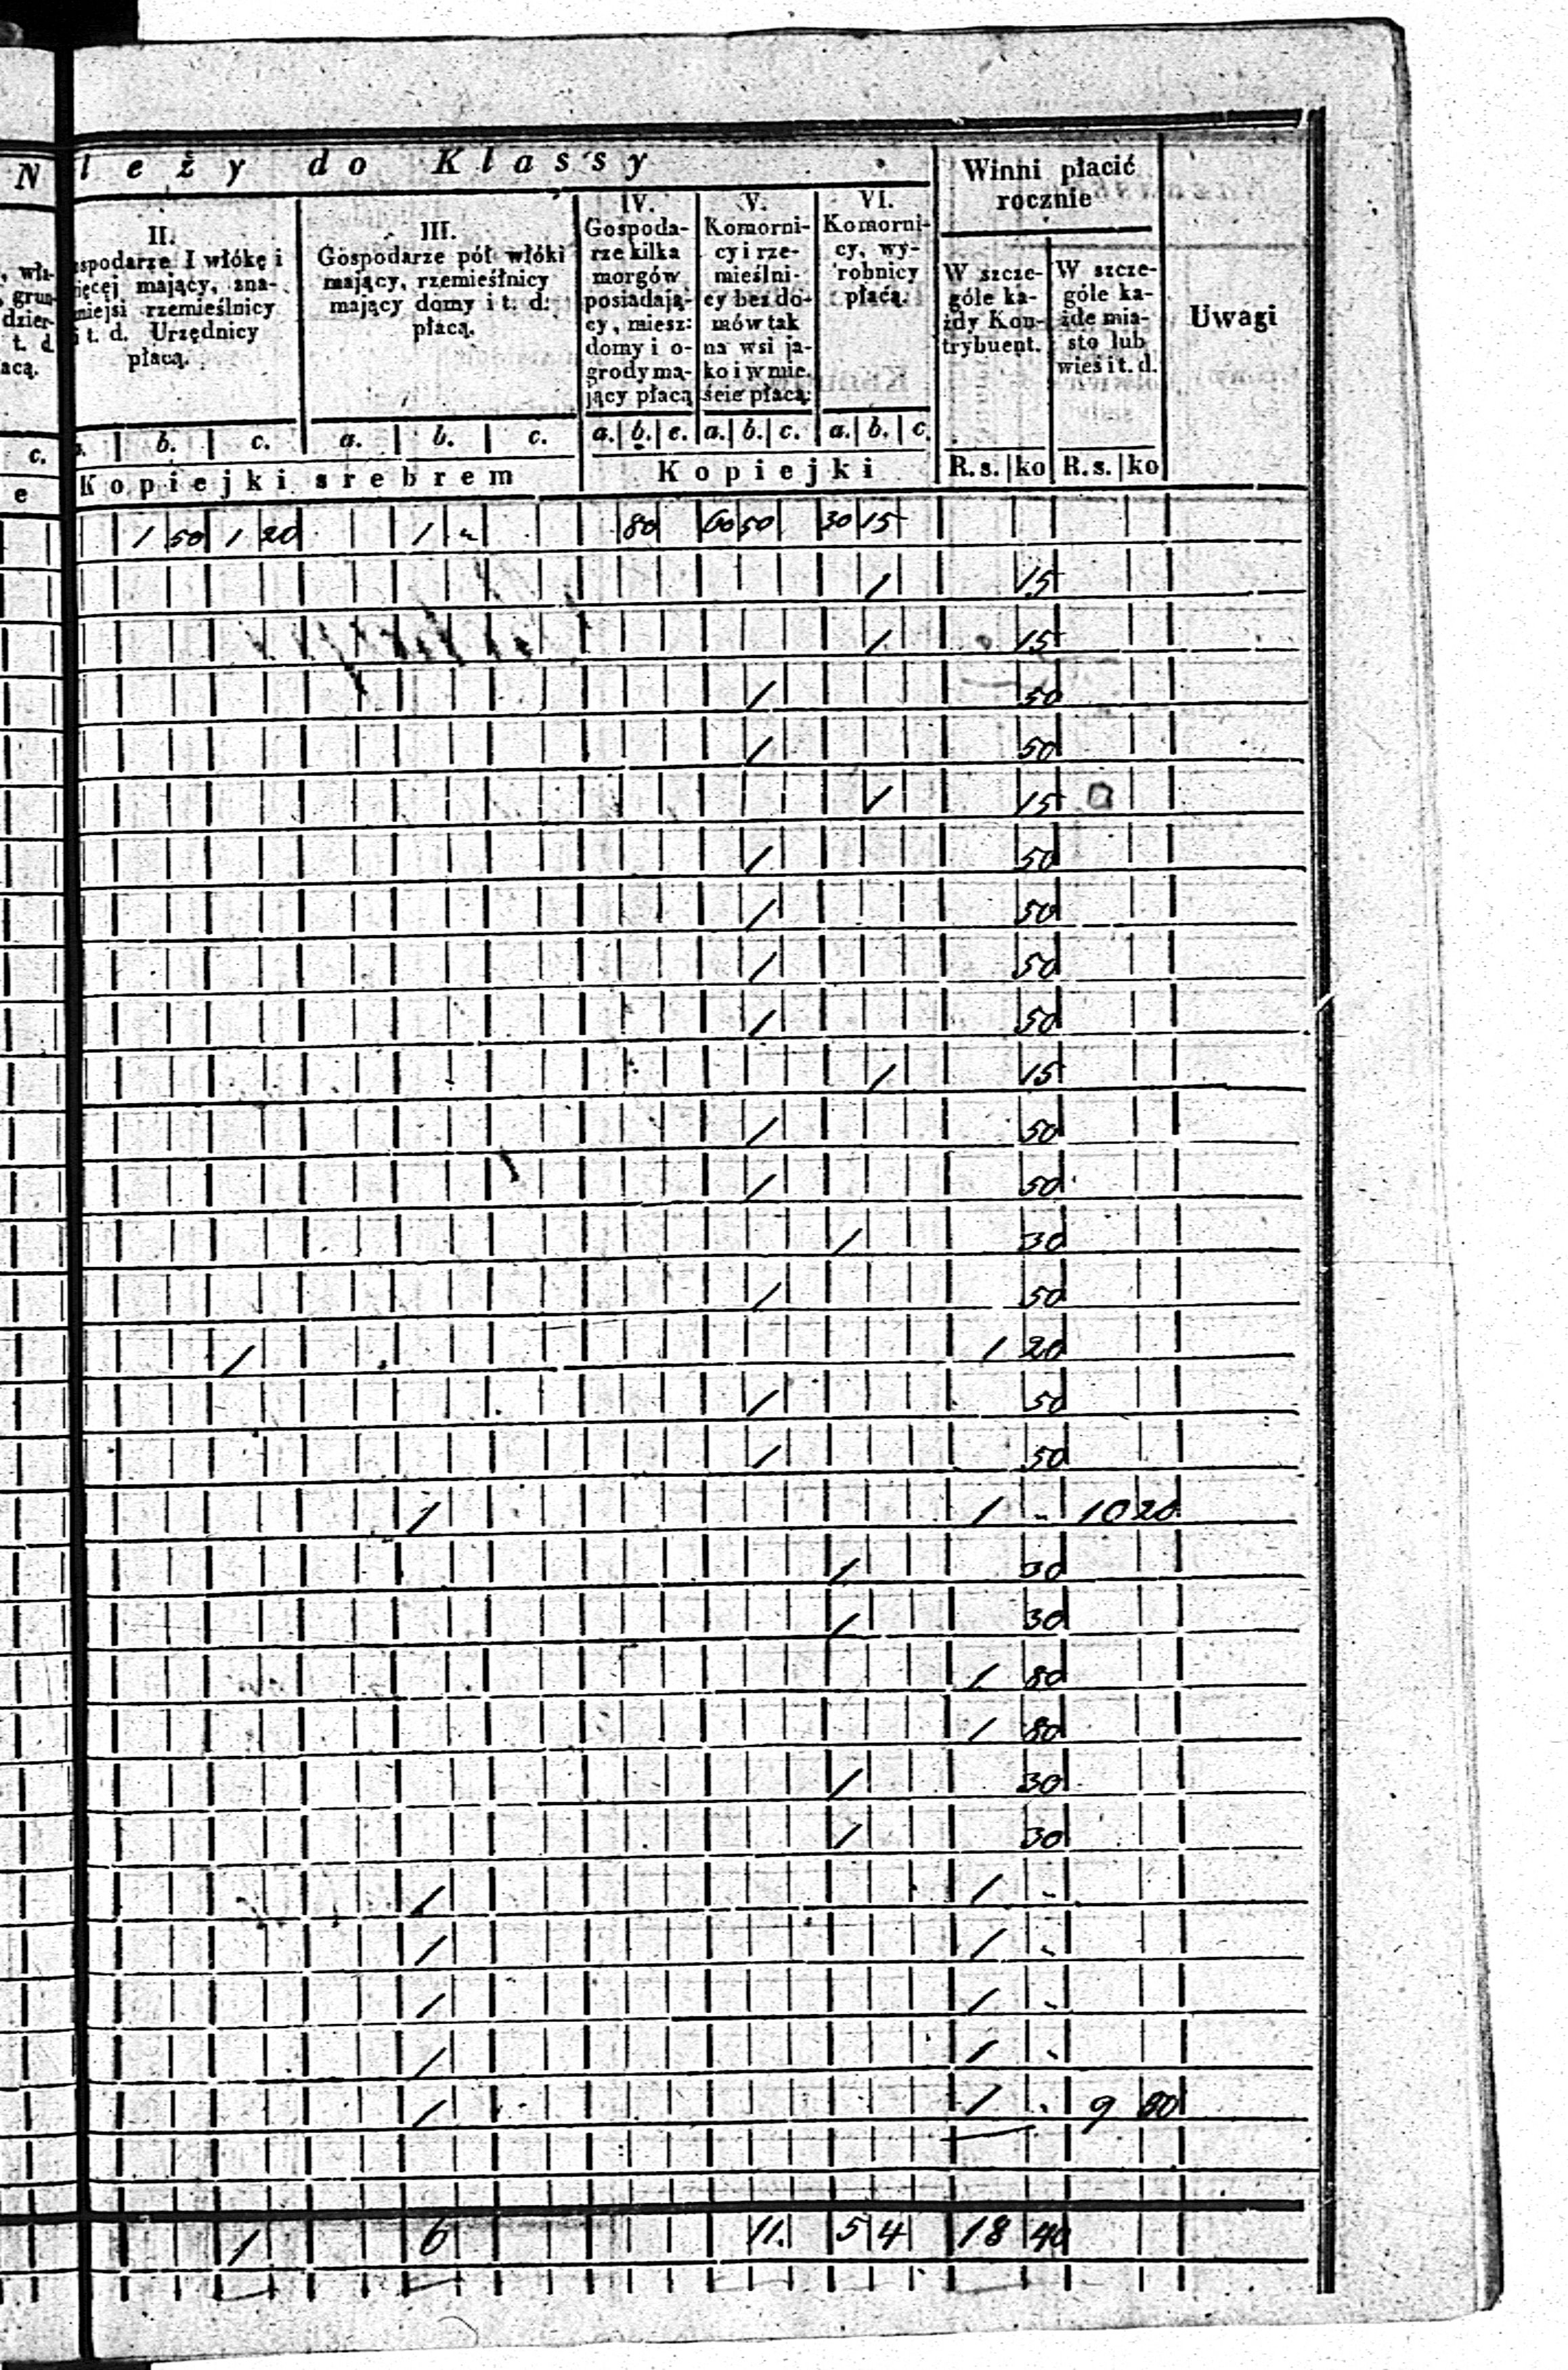 N leży do Klassy
Winni płacić
rocznie
Uwagi
, wła-
, grun-
dzier-
t. d
acą.
II.
spodarze I włókę i
ięcej mający, zna-
niejsi rzemieślnicy
i t. d. Urzędnicy
płacą.
III.
Gospodarze pół włóki
mający, rzemieślnicy
mający domy i t. d.
płacą.
IV.
Gospoda-
rze kilka
morgów
posiadają-
cy, miesz:
domy i o-
grody ma-
jący płacą
V.
Komorni-
cy i rze-
mieślni-
cy bez do-
mów tak
na wsi ja-
ko i w mie-
ście płacą:
VI.
Komorni-
cy, wy-
robnicy
płacą.
W szcze-
góle ka-
żdy Kon-
trybuent.
W szcze-
góle ka-
żde mia-
sto lub
wieś i t. d.
c. b. c. a. b. c. a. b. c. a. b. c. a. b. c.
e Kopiejki srebrem Kopiejki R. s. ko R. s. ko
1 50 1 20 1 " 80 60 50 30 15
/ 15
/ 15
/ 50
/ 50
/ 15
/ 50
/ 50
/ 50
/ 50
/ 15
/ 50
/ 50
/ 30
/ 50
/ 1 20
/ 50
/ 50
/ 1 - 10 20
/ 30
/ 30
1 80
1 80
/ 30
/ 30
/ 1 -
/ 1 -
/ 1 -
/ 1 -
/ 1 - 9 80
1 6 11. 5 4 18 40